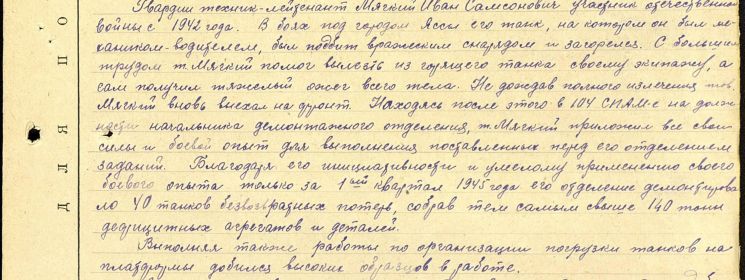 Гвардии техник-лейтенант Мягкий Иван Самсонович участник отечественной
войны с 1942 года. В боях под городом Яссы его танк, на котором он был ме-
хаником-водителем, был подбит вражеским снарядом и загорелся. С большим
трудом т. Мягкий помог вылезть из горящего танка своему экипажу, а
сам получил тяжелый ожог всего тела. Не дождав полного излечения тов.
Мягкий вновь выехал на фронт. Находясь после этого в 104 СПАМ-е на долж-
ности начальника демонтажного отделения, т. Мягкий приложил все свои
силы и боевой опыт для выполнения поставленных перед его отделением
заданий. Благодаря его инициативности и умелому применению своего
боевого опыта только за 1ый квартал 1945 года его отделение демонтирова-
ло 40 танков безвозвратных потерь, собрав тем самым свыше 140 тонн
дефицитных агрегатов и деталей.
Выполняя также работы по организации погрузки танков на
платформы добился высоких образцов в работе.
ДЛЯ ПО